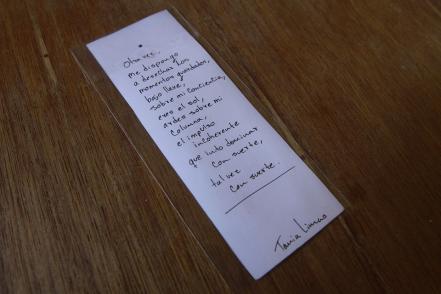 Otra vez...
me dispongo
a desechar los
momentos guardados,
bajo llave,
sobre mi conciencia,
eres el sol,
ardes sobre mi
columna,
el impulso
incoherente
que
dominar
con suerte,
tal vez
con suerte.
Tania Limas